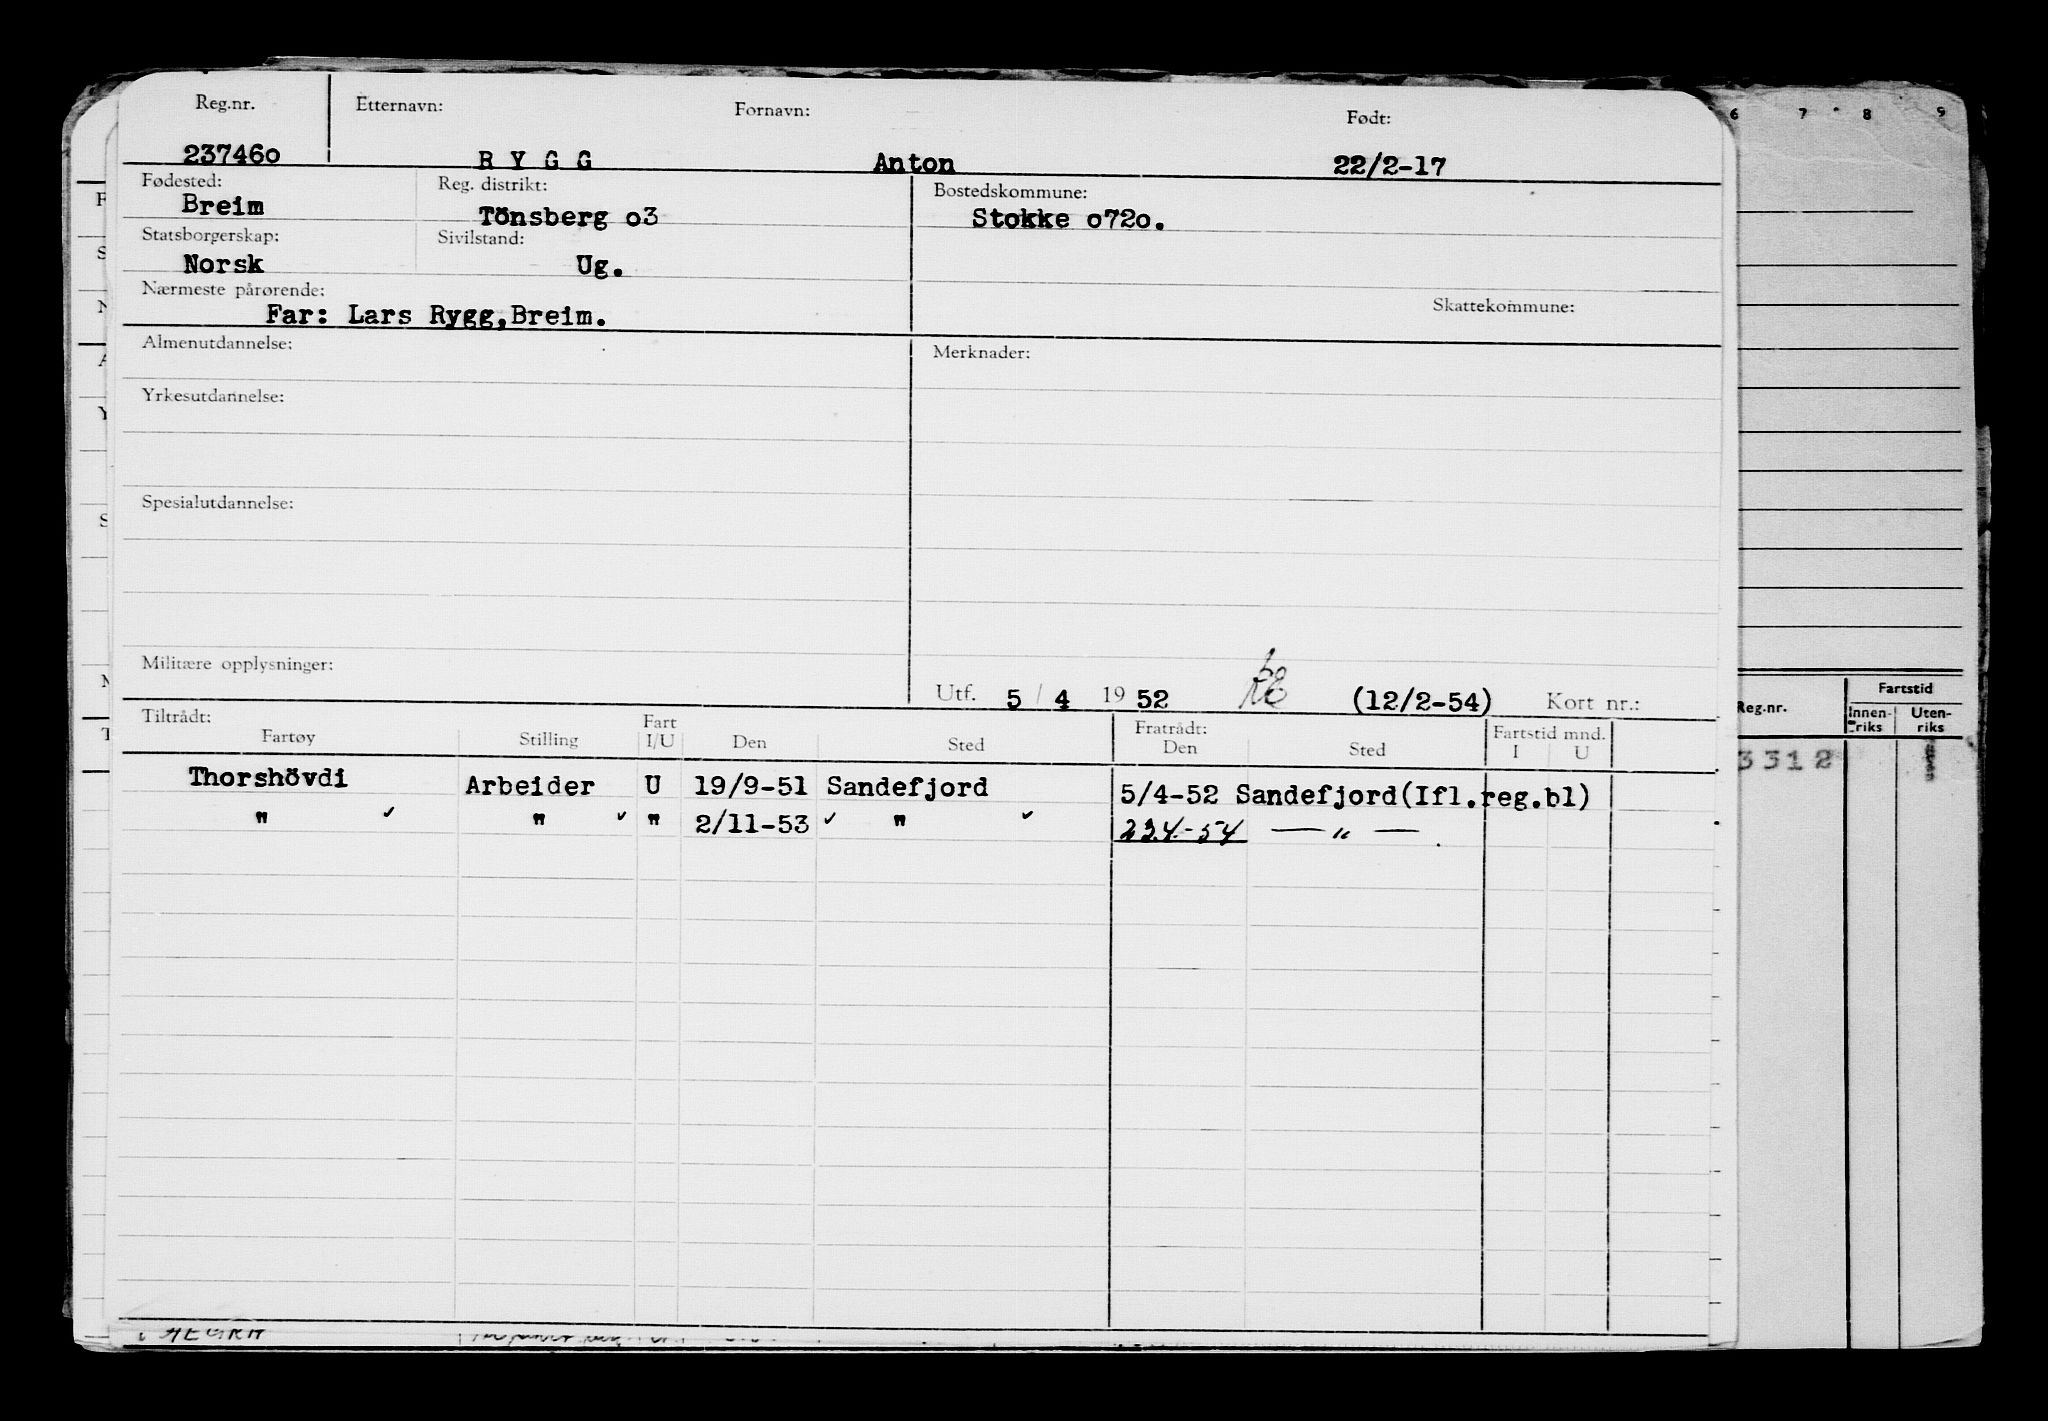 Reg.nr. Etternavn: Fornavn: Født:
23746o R Y G G Anton 22/2-17
Fødested: Reg. distrikt: Bostedskommune:
Breim Tönsberg o3 Stokke o72o.
Statsborgerskap: Sivilstand:
Norsk Ug.
Nærmeste pårørende: Skattekommune:
Far: Lars Rygg,Breim.
Almenutdannelse: Merknader:
Yrkesutdannelse:
Spesialutdannelse:
Militære opplysninger:
Utf. 5 / 4 19 52 (12/2-54) Kort nr.:
Tiltrådt: Fart Fratrådt: Fartstid mnd.
Fartøy Stilling I/U Den Sted Den Sted I U
Thorshövdi Arbeider U 19/9-51 Sandefjord 5/4-52 Sandefjord(Ifl.reg.bl)
" ✓ " ✓ " 2/11-53 ✓ " ✓ 23.4.-54 — " —
6 7 8 9
Reg.nr. Fartstid
Innen-riks Uten-riks
3312